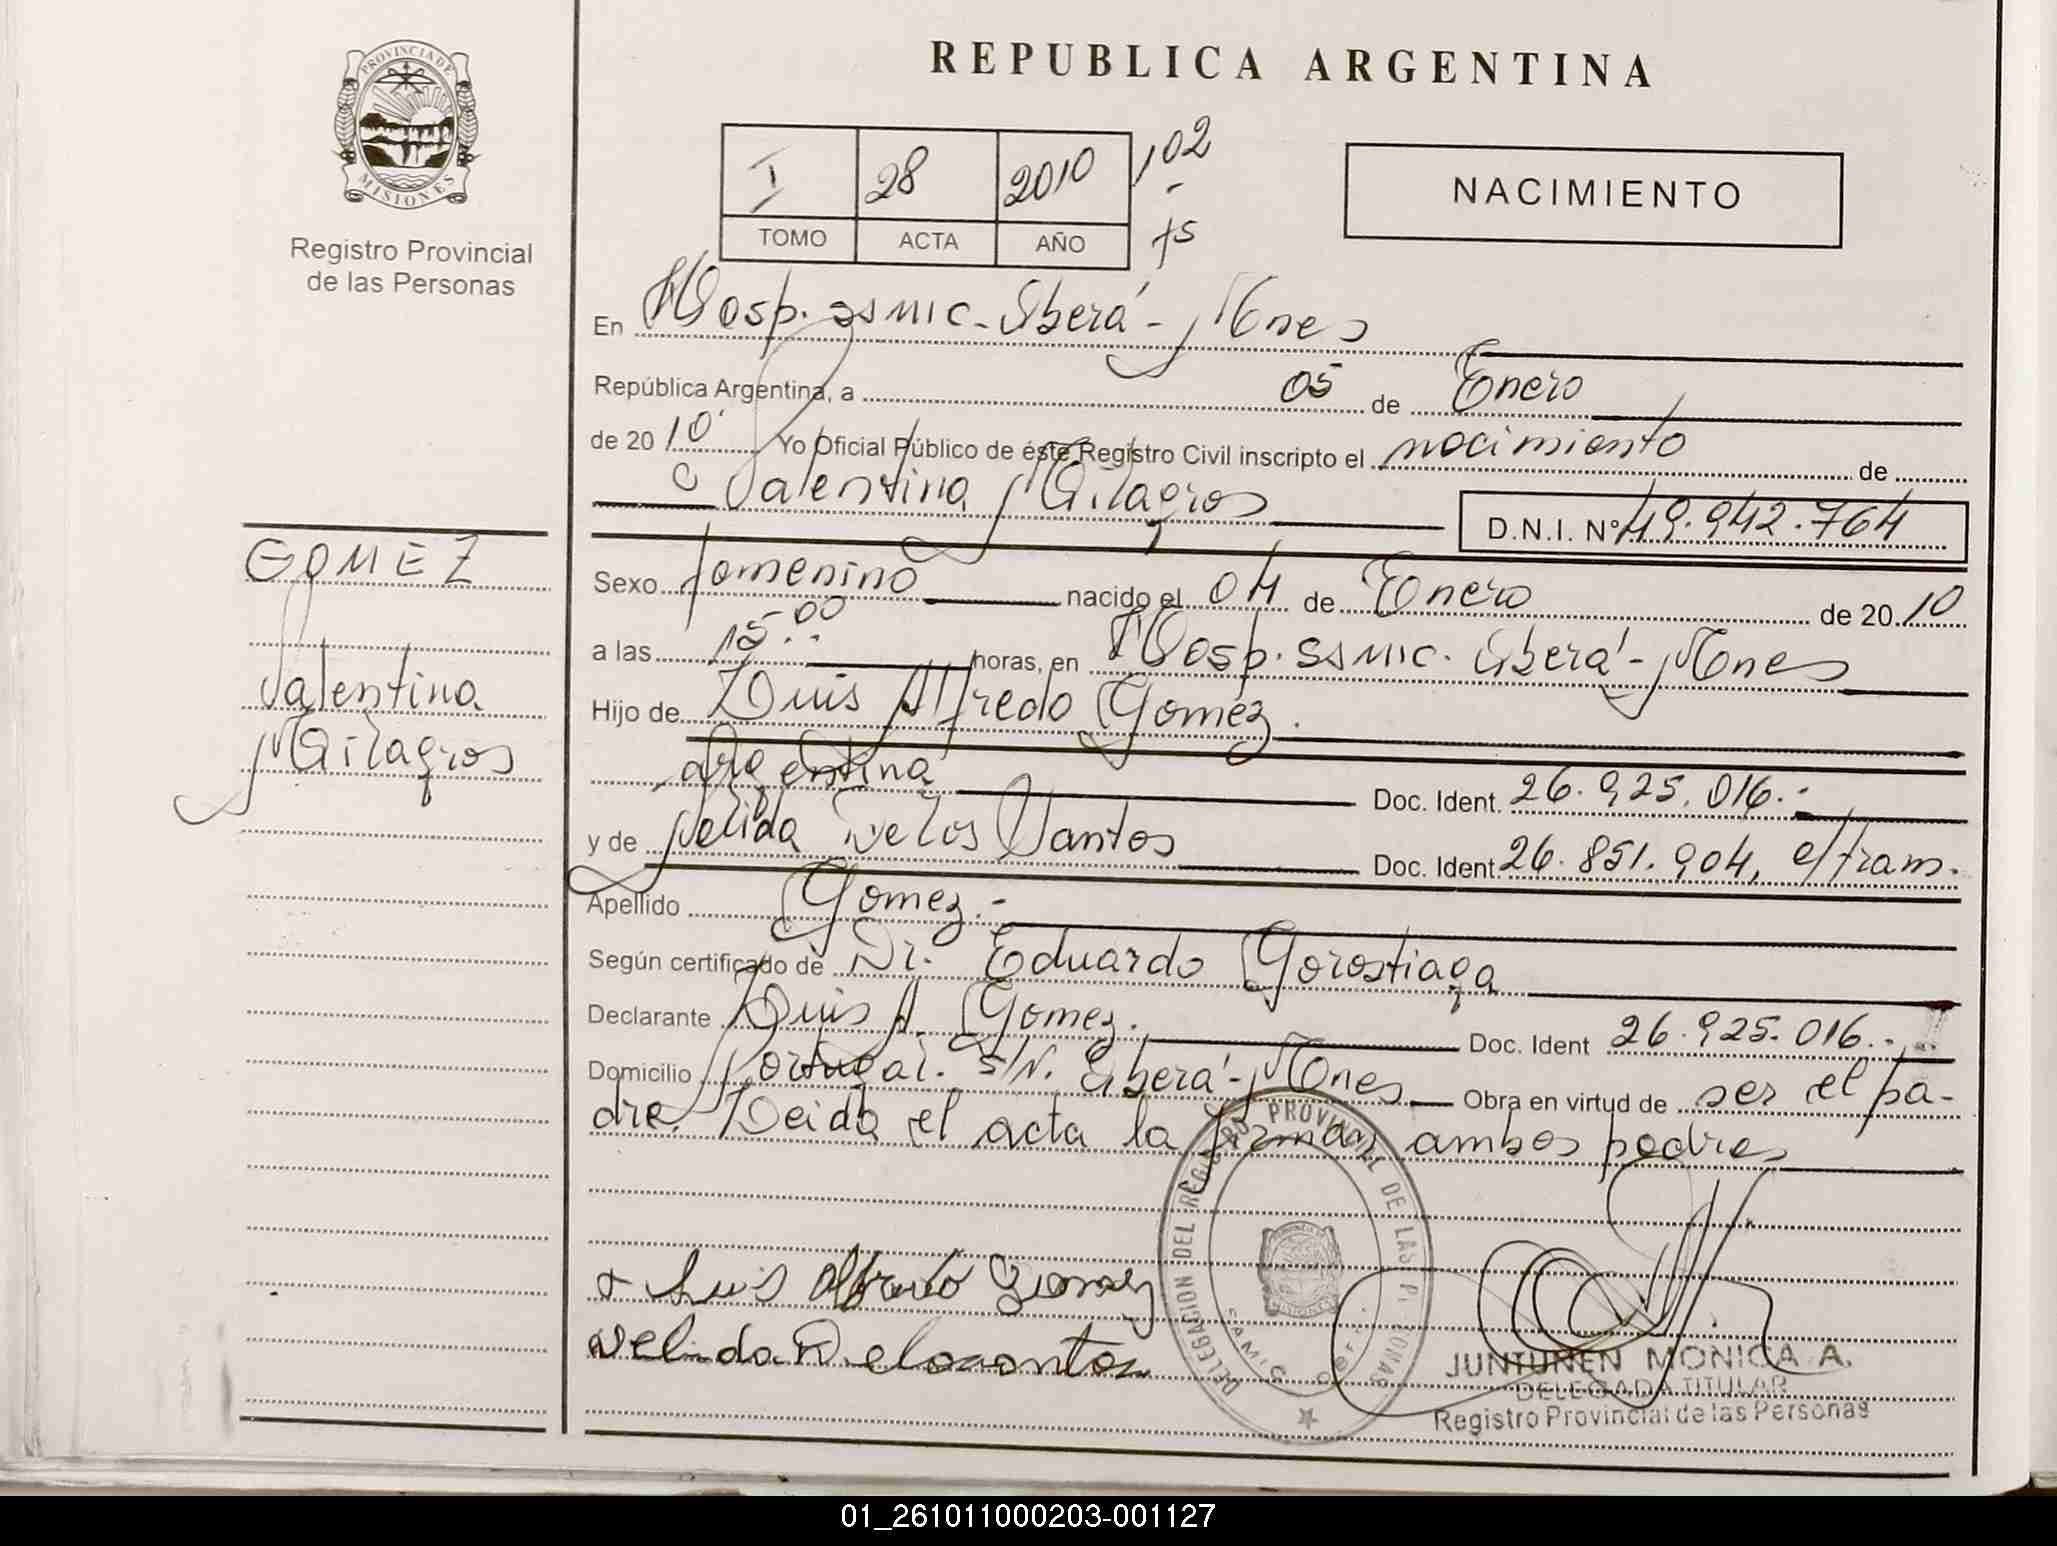 PROVINCIA DE
MISIONES
Registro Provincial
de las Personas
REPUBLICA ARGENTINA
I 28 2010 102
TOMO ACTA AÑO fs
NACIMIENTO
En Hosp. SSMIC. Oberá - Mnes
República Argentina, a 05 de Enero
de 2010 Yo Oficial Público de éste Registro Civil inscripto el nacimiento de
Valentina Milagros D.N.I. Nº 49.942.764
GOMEZ
Valentina
Milagros
Sexo femenino nacido el 04 de Enero de 2010
a las 15:00 horas, en Hosp. SSMIC. Oberá - Mnes
Hijo de Luis Alfredo Gomez.
argentina Doc. Ident. 26.925.016.-
y de Nelida De los Santos Doc. Ident. 26.851.904, e/tram.
Apellido Gomez.-
Según certificado de Dr. Eduardo Gorostiaga
Declarante Luis A. Gomez. Doc. Ident 26.925.016.-
Domicilio Portugal. S/N. Oberá - Mnes Obra en virtud de ser el pa-
dre. Leida el acta la firman ambos padres
DELEGACION DEL REGISTRO PROVINCIAL DE LAS PERSONAS
Luis Alfredo Gomez
Nelida Delosantos
JUNTUNEN MONICA A.
DELEGADA TITULAR
Registro Provincial de las Personas
01_261011000203-001127